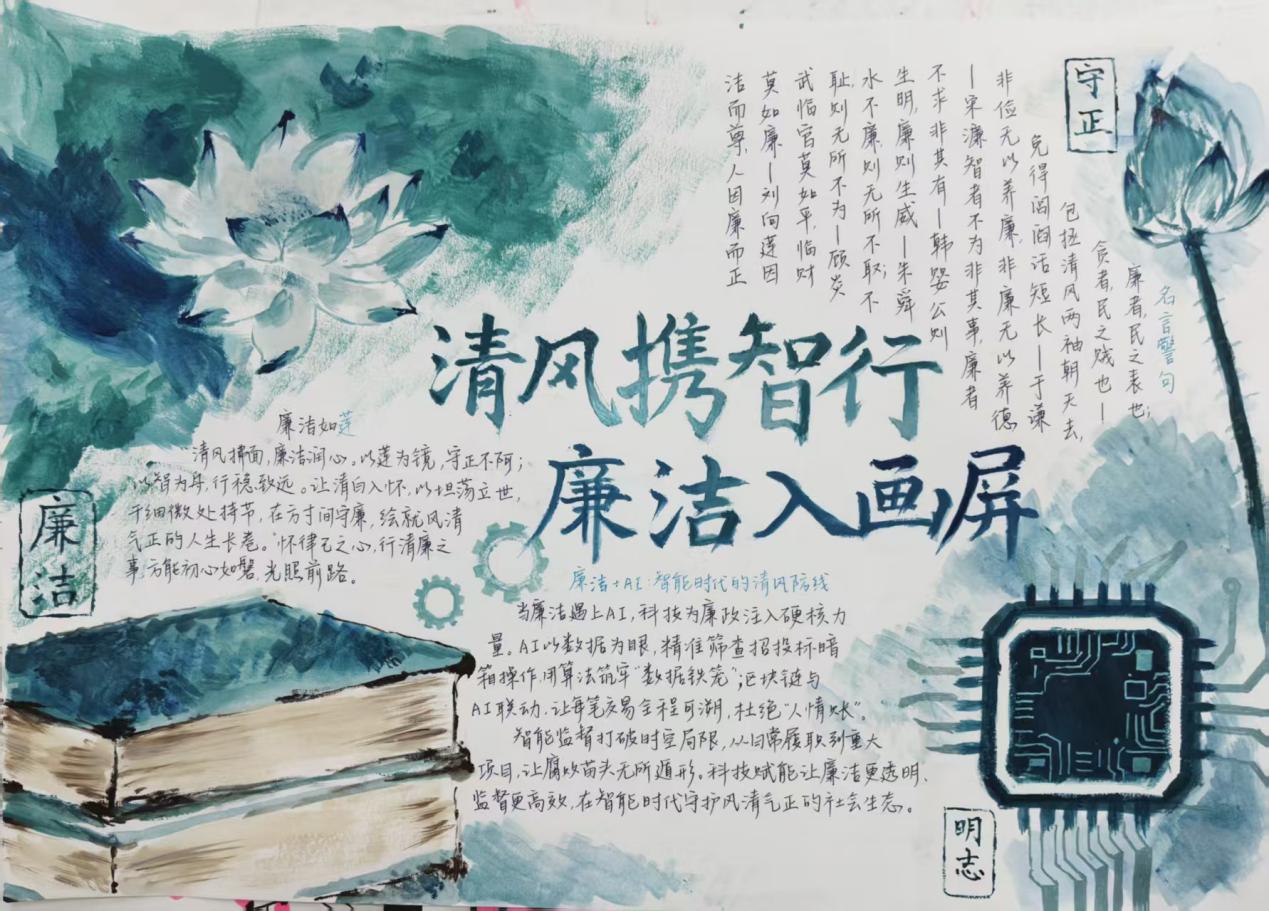 清风携智行
廉洁入画屏
守正
名言警句
廉者,民之表也;
贪者,民之贼也—
包拯清风两袖朝天去,
免得阎阎话短长——于谦
非俭无以养廉,非廉无以养德
—宋濂智者不为非其事,廉者
不求非其有—韩婴公则
生明,廉则生威—朱舜
水不廉则无所不取;不
耻则无所不为—顾炎
武临官莫如平,临财
莫如廉—刘向莲因
洁而尊,人因廉而正
廉洁如莲
清风拂面,廉洁润心。以莲为镜,守正不阿;
以智为舟,行稳致远。让清白入怀,以坦荡立世,
于细微处持节,在方寸间守廉,绘就风清
气正的人生长卷。怀律己之心,行清廉之
事,方能初心如磐,光照前路。
廉洁
廉洁+AI:智能时代的清风防线
当廉洁遇上AI,科技为廉政注入硬核力
量。AI以数据为眼,精准筛查招投标暗
箱操作,用算法筑牢“数据铁笼”;区块链与
AI联动,让每笔交易全程可溯,杜绝“人情账”。
智能监督打破时空局限,从日常履职到重大
项目,让腐败苗头无所遁形。科技赋能让廉洁更透明、
监督更高效,在智能时代守护风清气正的社会生态。
明志